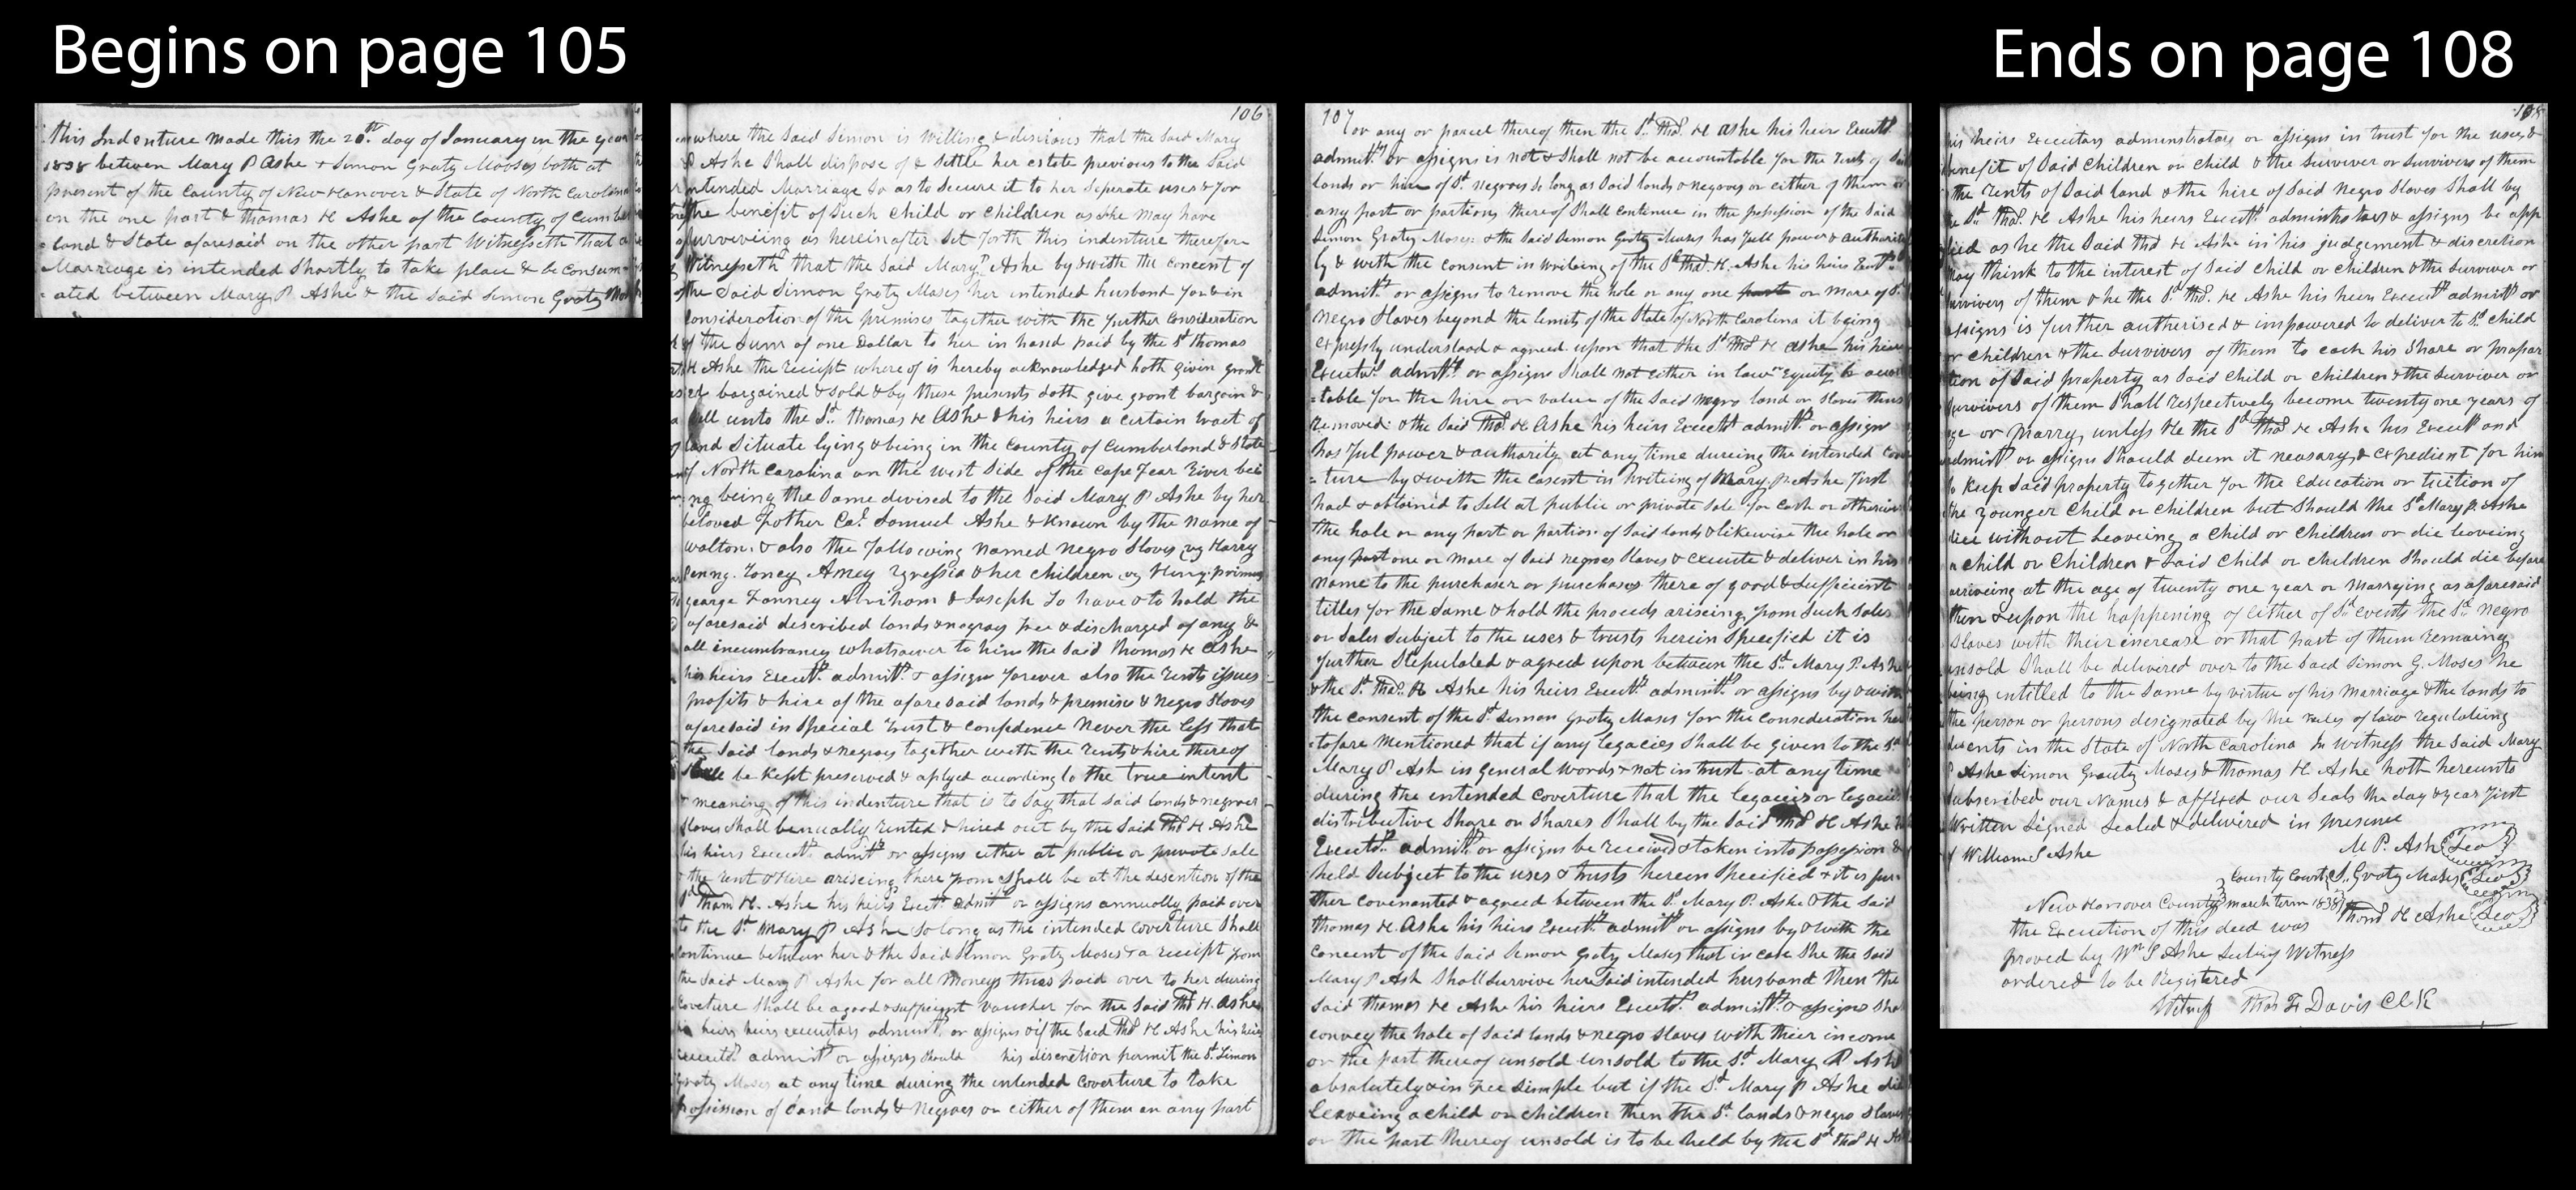 Begins on page 105
Ends on page 108
this Indenture made this the 20th day of January in the year
1838 between Mary P Ashe & Simon Graty Moses both at
present of the County of New Hanover & State of North Carolina
on the one part & thomas H Ashe of the County of Cumber
land & State aforesaid on the other part Witnesseth that a
Marriage is intended Shortly to take place & be consum-
ated between Mary P Ashe & the Said Simon Graty
106
where the Said Simon is Willing & desirous that the Said Mary
P Ashe Shall dispose of & Settle her estate previous to the Said
intended Marriage So as to Secure it to her Separate uses & for
the benefit of Such Child or Children as She may have
surveviing as hereinafter Set forth this indenture therefore
Witnesseth that the Said Mary P Ashe by & with the concent of
the Said Simon Graty Moses her intended husband for & in
consideration of the premises together with the further Consideration
of the Sum of one Dollar to her in hand paid by the Sd thomas
H Ashe the receipt where of is hereby acknowledged hath given grant
ed bargained & sold & by these presents doth give grant bargain &
sell unto the Sd thomas H Ashe & his heirs a certain tract of
land Situate lying & being in the County of Cumberland & State
of North Carolina on the west Side of the Cape Fear River bei
ng being the Same devised to the Said Mary P Ashe by her
beloved Father Col Samuel Ashe & known by the name of
walton. & also the following named negro Slaves vz Harry
Penny. Toney Amey & her children vz Henry primus
george Fanney Abriham & Joseph To have & to hold the
aforesaid described lands & negroes free & discharged of any &
all incumbrancy whatsoever to him the Said thomas H Ashe
his heirs Execut admit & assigns forever also the Rents issues
profits & hire of the aforesaid lands & premises & negro Slaves
aforesaid in Special trust & confedence Never the less that
the Said lands & negroes together with the rents & hire thereof
Shall be kept preserved & aplyed according to the true intent
& meaning of this indenture that is to Say that Said lands & negroes
Slaves Shall be anually rented & hired out by the Said Thos H Ashe
his heirs Execut admit or assigns either at public or private Sale
& the rent & Hire ariseing there from Shall be at the desention of the
Sd Thom H. Ashe his heirs Execut admit or assigns annually paid over
to the Sd Mary P Ashe So long as the intended Coverture Shall
continue between her & the Said Simon Graty Moses & a receipt from
the Said Mary P Ashe for all Moneys thus paid over to her during
coveture Shall be a good & suffecient voucher for the Said Thd H. Ashe
heirs heirs executors admint or assigns & if the Said Thd H Ashe his heirs
execut admit or assigns Should his discretion permit the Sd Simon
Graty Moses at any time during the intended Coverture to take
possission of Said lands & Negroes or either of them or any part
107
or any or parcel thereof then the Sd Thd H Ashe his heir Execut
admit or assigns is not & Shall not be accountable for the rents of Said
lands or hire of Sd negroes So long as Said lands & negroes or either of them or
any part or portions thereof Shall continue in the possession of the Said
Simon Graty Moses & the Said Simon Graty Moses has full power & authority
by & with the consent in writeing of the Sd Thd. H. Ashe his heirs Execut
admit or assigns to remove the hole or any one part or more of Sd
negro Slaves beyond the limits of the State of North Carolina it being
expressly understood & agreed upon that the Sd Thd H Ashe his heirs
Execut admit or assigns Shall not either in law or Equity be accou
=table for the hire or value of the Said negro land or Slaves thus
removed: & the Said Thd H Ashe his heirs Execut admit or assigns
has ful power & authority at any time dureing the intended Cov
=ture by & with the casent in Writeing of Mary P Ashe first
had & obtained to Sell at public or private Sale for Cash or otherwise
the hole or any part or portion of Said lands & likewise the hole or
any part one or more of Said negroes Slaves & Execute & deliver in his
name to the purchaser or purchases there of good & Suffecient
titles for the Same & hold the proceeds ariseing from Such Sales
or Sales Subject to the uses & trusts herein Specified it is
further Stepulated & agreed upon between the Sd Mary P. Ashe
& the Sd Thd. H Ashe his heirs Execut admint or assigns by & with
the consent of the Sd Simon Graty Moses for the Consideration her
-tofore Mentioned that if any legacies Shall be given to the Sd
Mary P Ash in general words & not in trust at any time
during the intended coverture that the legacies or legacies
distributive Share or Shares Shall by the Said Thd H Ashe
Execut admit or assigns be received & taken into possession &
held Subject to the uses & trusts herein Specified & it is fur-
ther covenanted & agreed between the Sd Mary P. Ashe & the Said
thomas H. Ashe his heirs Execut admit or assigns by & with the
Concent of the Said Simon Graty Moses that in case She the Said
Mary P Ash Shall Survive her Said intended husband then the
Said thomas H Ashe his heirs Execut admint & assigns Shal
convey the hole of Said lands & negro Slaves with their income
or the part there of unsold unsold to the Sd Mary P Ash
absolutely & in Fee Simple but if the Sd Mary P Ashe die
leaveing a child or children then the Sd lands & negro Slaves
or the part thereof unsold is to be held by the Sd Thd H
108
his heirs Executors adminstrators or assigns in trust for the uses &
benefit of Said Children or Child & the Surviver or Survivers of them
the rents of Said land & the hire of Said Negro Slaves Shall by
the Sd Thd. H Ashe his heirs Execut adminstrators & assigns be app
lied as he the Said Thd H Ashe in his judgement & discretion
may think to the interest of Said Child or Children & the Surviver or
survivers of them & he the Sd Thd. H Ashe his heirs Execut admit or
assigns is further autherised & impowered to deliver to Sd Child
or Children & the Survivers of them to each his Share or propor
tion of Said property as Said Child or Children & the Surviver or
survivers of them Shall respectively become twenty one years of
age or Marry, unless He the Sd Thd H Ashe his Execut and
admint or assigns Should deem it necesary & expedient for him
to keep Said property together for the Education or tuction of
the younger Child or Children but Should the Sd Mary P. Ashe
die without Leaveing a Child or Children or die leaveing
a child or Children & Said Child or Children Should die before
arriveing at the age of twenty one year or Marrying as aforesaid
then & upon the happening of either of Sd events the Sd Negro
Slaves with their increase or that part of them remaing
unsold Shall be delivered over to the Said Simon G. Moses he
being entitled to the Same by virtue of his Marriage & the lands to
the person or persons designated by the rules of law regulateing
decents in the State of North Carolina In witness the Said Mary
P Ashe Simon Grauty Moses & thomas H Ashe hath hereunto
Subscribed our Names & affixed our Seals the day & year first
Written Signed Sealed & delivered in presence
of William S Ashe
M P. Ash Seal
County Court S. Graty Moses Seal
New Hanover County March term 1838 Thomd H Ashe Seal
the Execution of this deed was
proved by Wm S Ashe Subing Witness
ordered to be Registered
Witness Thos F Davis Clk